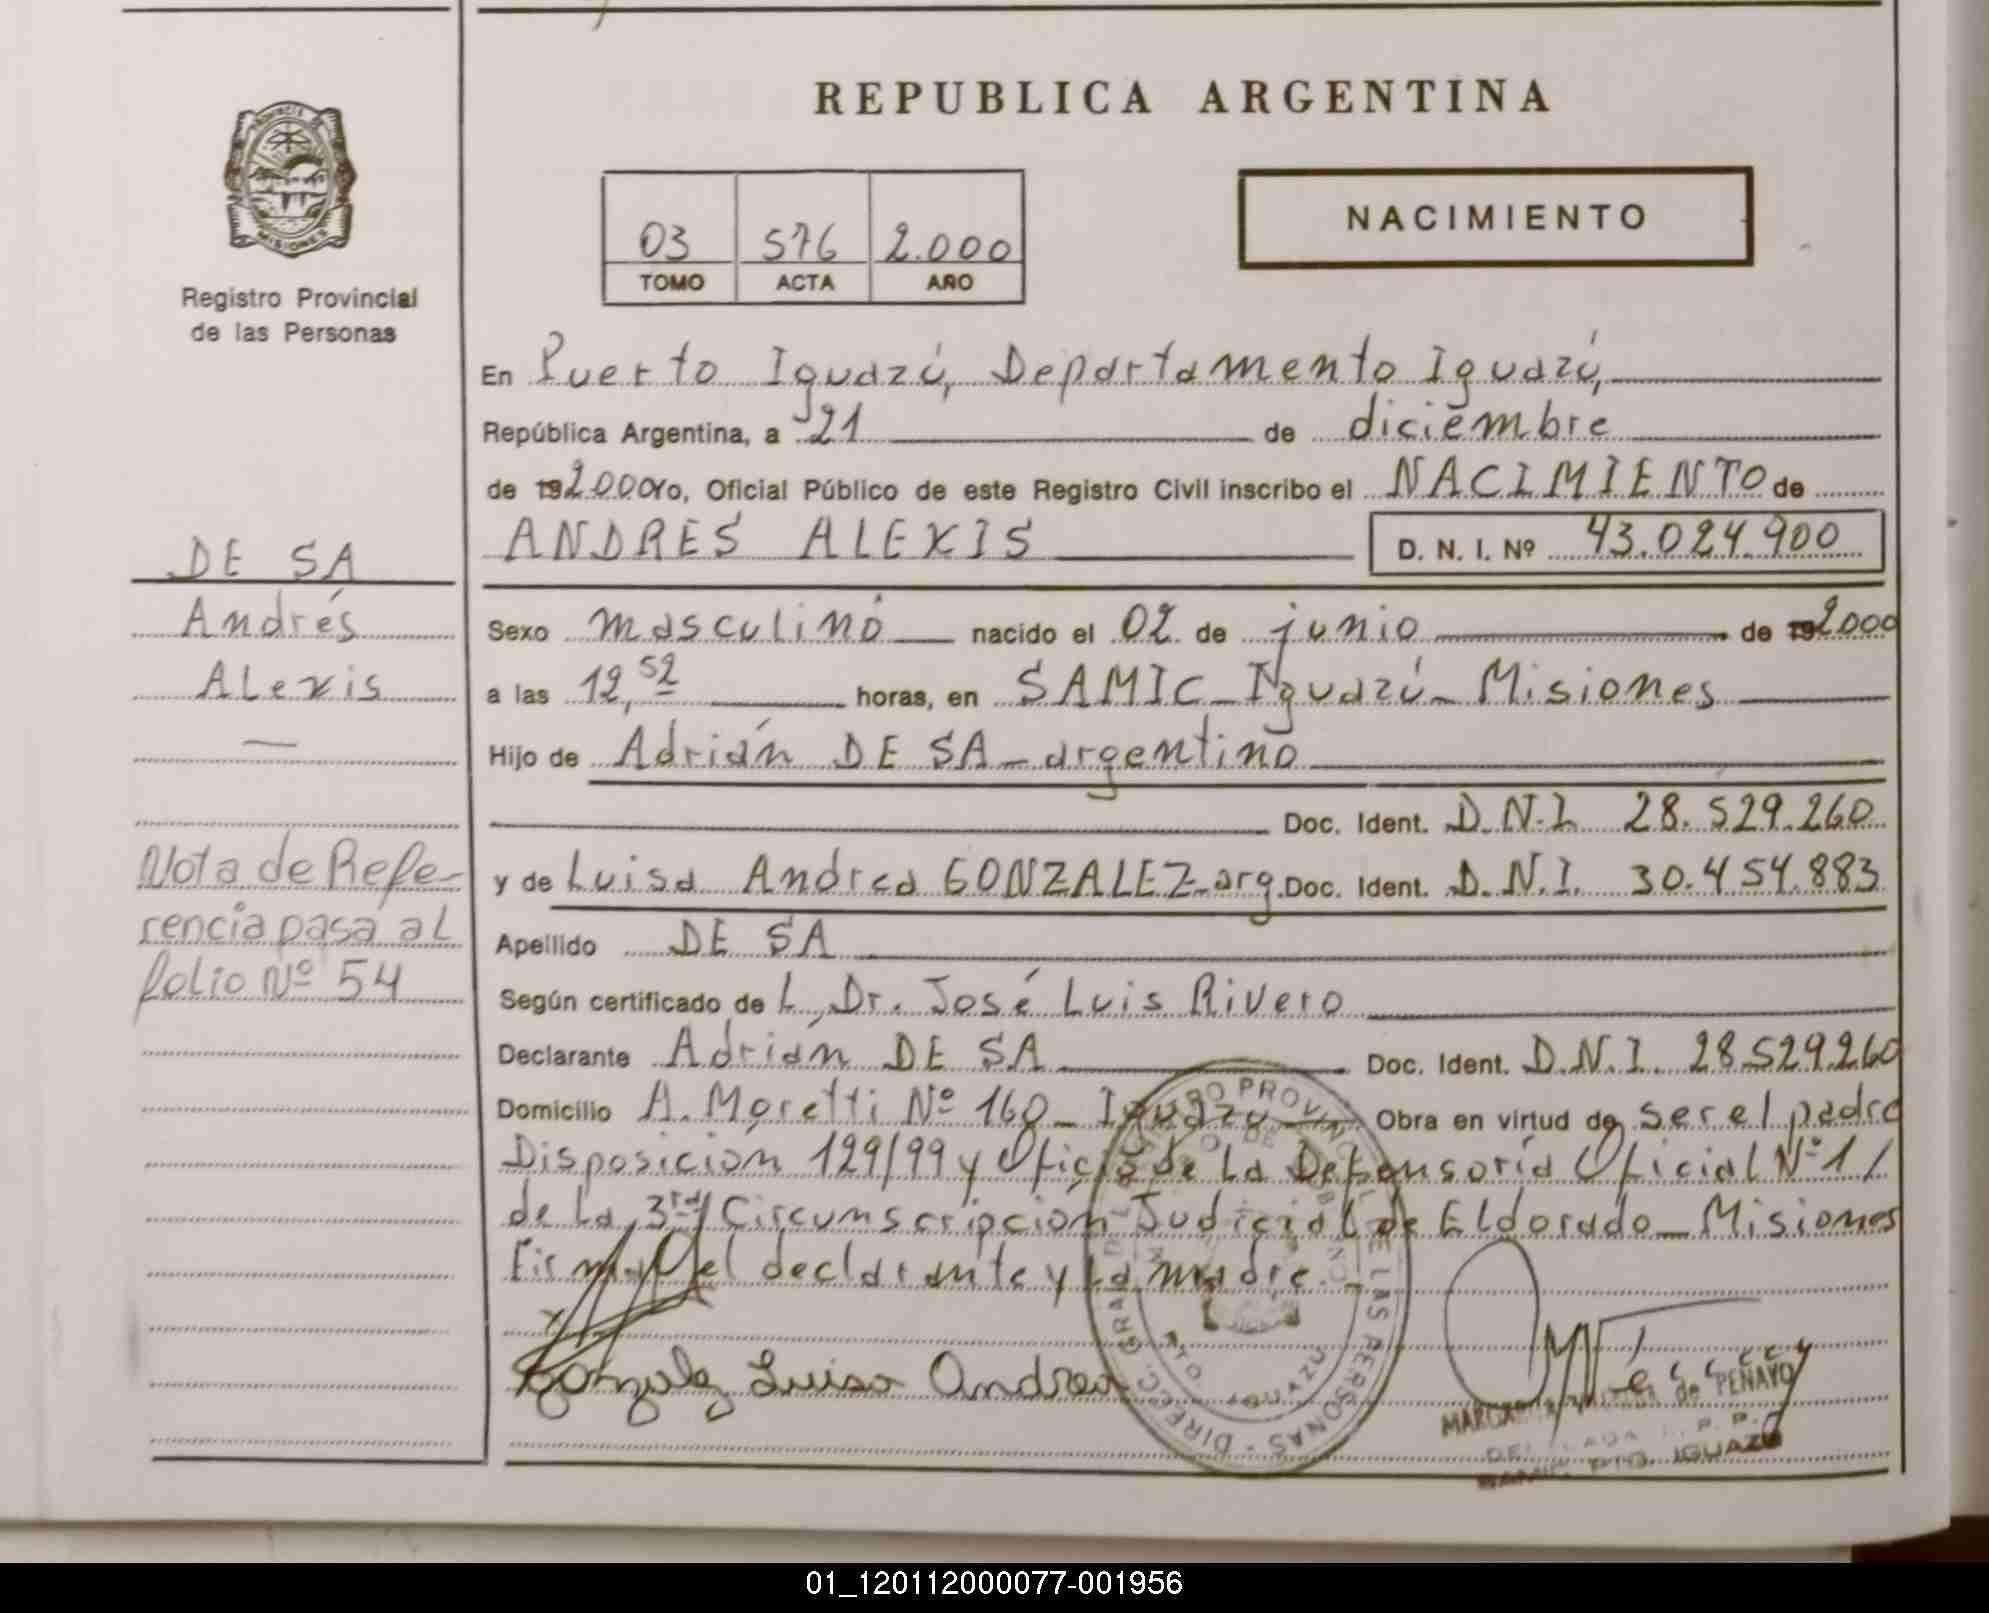 REPUBLICA ARGENTINA
PROVINCIA DE MISIONES
Registro Provincial
de las Personas
03 576 2.000
TOMO ACTA AÑO
NACIMIENTO
En Puerto Iguazú, Departamento Iguazú,
República Argentina, a 21 de diciembre
de 192000 Yo, Oficial Público de este Registro Civil inscribo el NACIMIENTO de
ANDRES ALEXIS D. N. I. Nº 43.024.900
Sexo masculino nacido el 02 de junio de 192000
a las 12,52 horas, en SAMIC_Iguazú_Misiones
Hijo de Adrián DE SA_argentino
Doc. Ident. D.N.I 28.529.260
y de Luisa Andrea GONZALEZ_arg. Doc. Ident. D.N.I. 30.454.883
Apellido DE SA
Según certificado de L, Dr. José Luis Rivero
Declarante Adrián DE SA Doc. Ident. D.N.I. 28.529.260
Domicilio A. Moretti Nº 160_Iguazú Obra en virtud de ser el padre
Disposición 129/99 y Oficio de La Defensoría Oficial Nº 1/
de La 3ra/ Circunscripción Judicial de Eldorado_Misiones
Firman el declarante y La madre.
Gonzalez Luisa Andrea
DE SA
Andrés
Alexis
Nota de Refe-
rencia pasa al
folio Nº 54
DIREC. GRAL. DEL REGISTRO PROVINCIAL DE LAS PERSONAS
IGUAZU
de PEÑAYO
PTO. IGUAZU
01_120112000077-001956